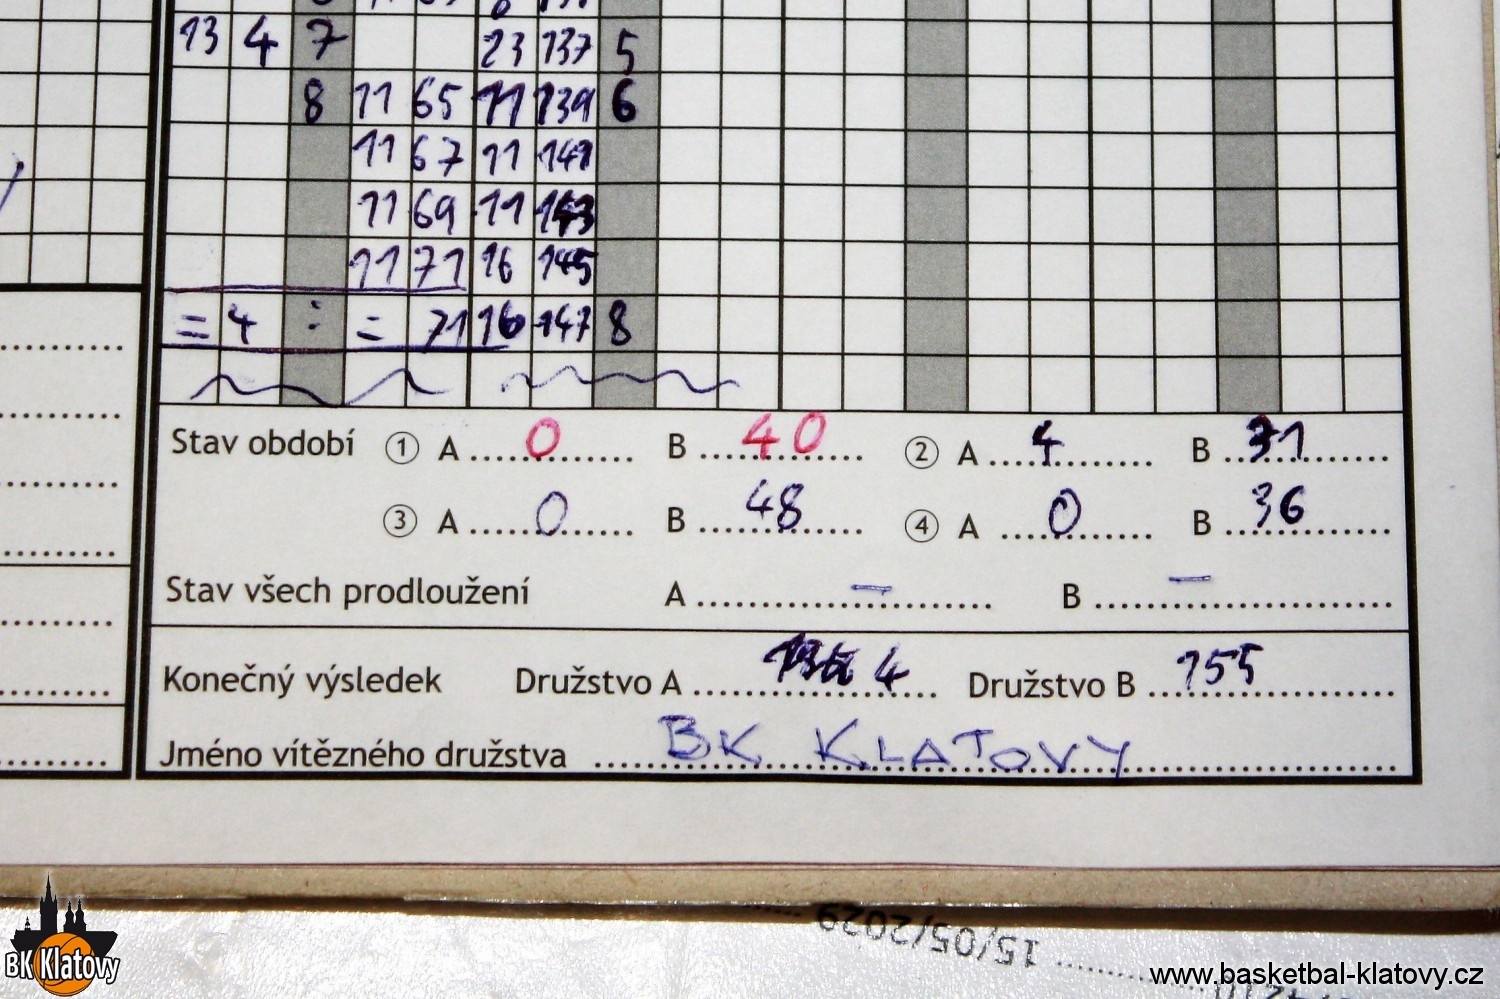 13 4 7 23 137 5
8 11 65 11 139 6
11 67 11 141
11 69 11 143
11 71 16 145
= 4 : = 71 16 147 8
Stav období ① A 0 B 40 ② A 4 B 31
③ A 0 B 48 ④ A 0 B 36
Stav všech prodloužení A – B –
Konečný výsledek Družstvo A 4 Družstvo B 155
Jméno vítězného družstva BK KLATOVY
15/05/2029
BK Klatovy
www.basketbal-klatovy.cz